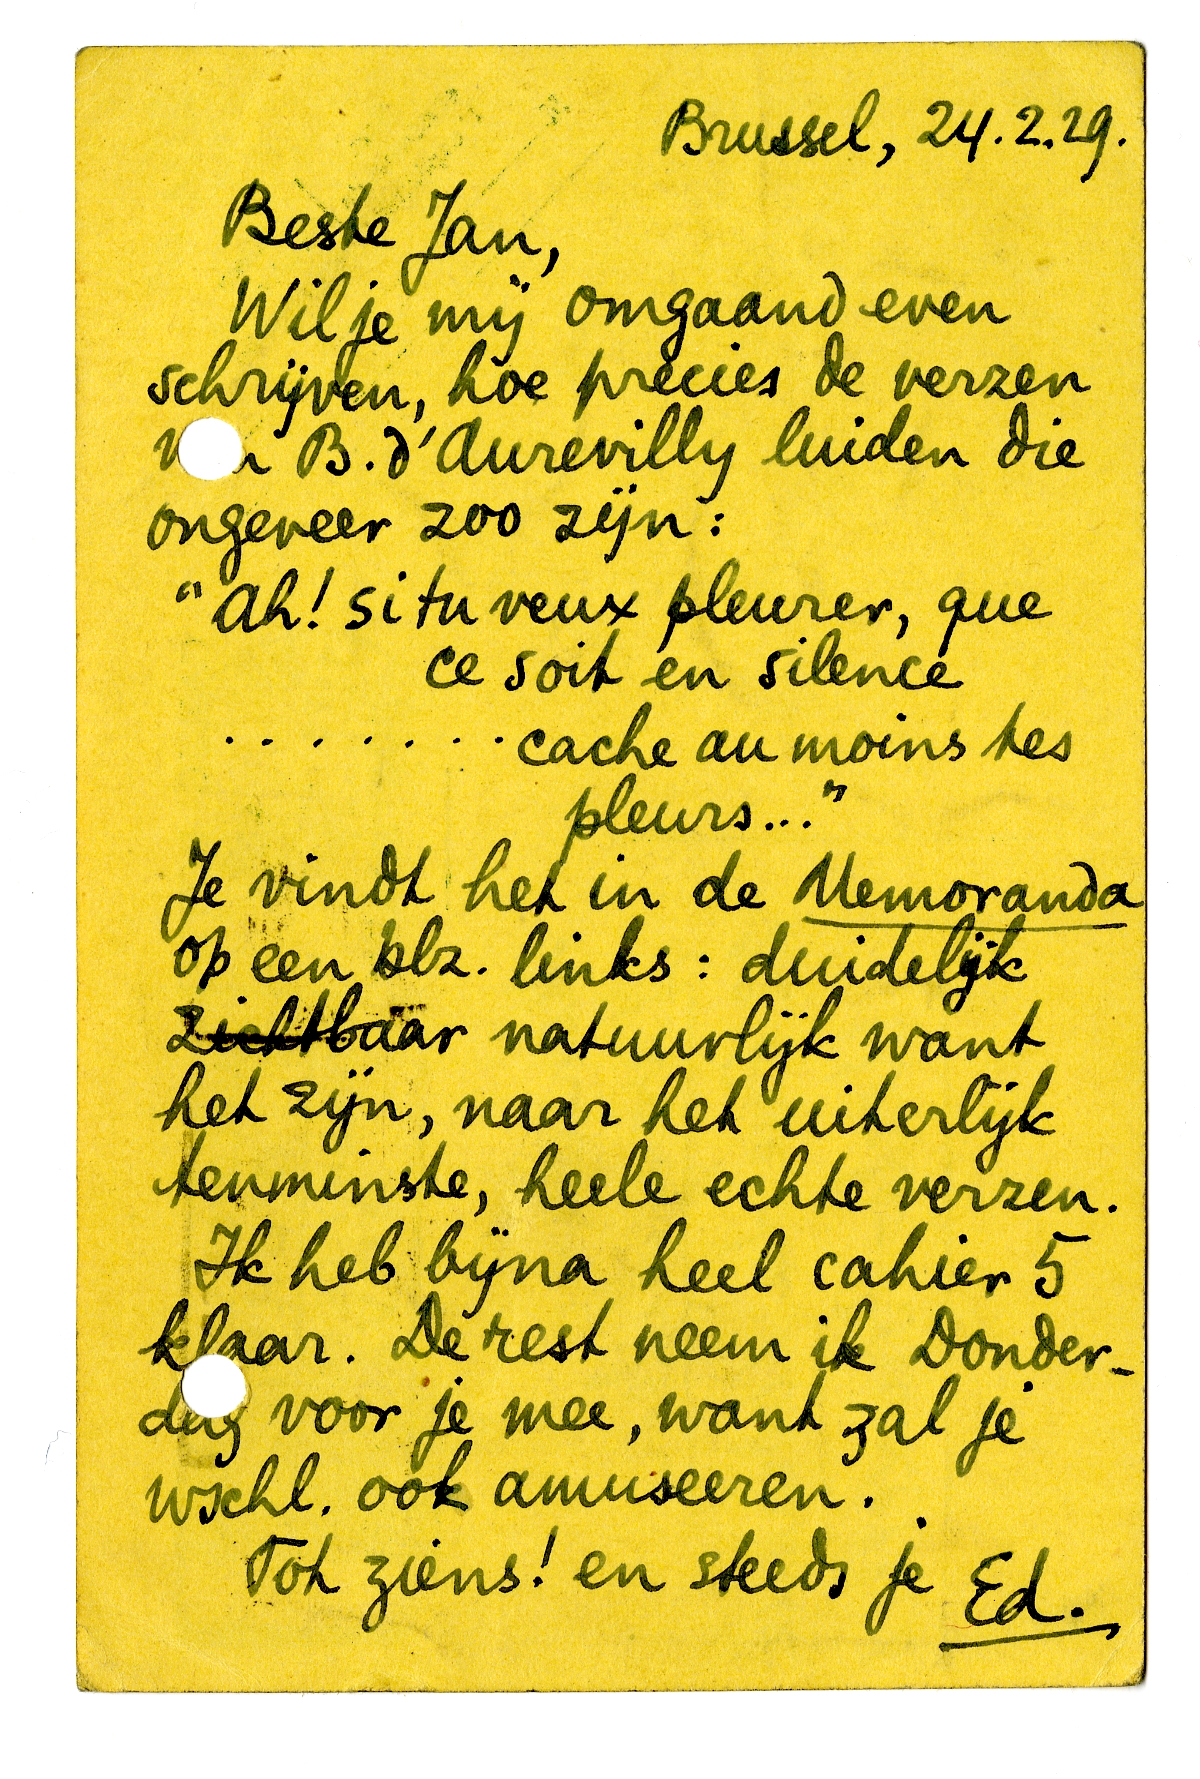 Brussel, 24.2.29.
Beste Jan,
Wil je mij omgaand even
schrijven, hoe precies de verzen
van B. d'Aurevilly luiden die
ongeveer zoo zijn:
"Ah! si tu veux pleurer, que
ce soit en silence
........cache au moins tes
pleurs..."
Je vindt het in de Memoranda
op een blz. links: duidelijk
zichtbaar natuurlijk want
het zijn, naar het uiterlijk
tenminste, heele echte verzen.
Ik heb bijna heel cahier 5
klaar. De rest neem ik Donder-
dag voor je mee, want zal je
wschl. ook amuseeren.
Tot ziens! en steeds je Ed.